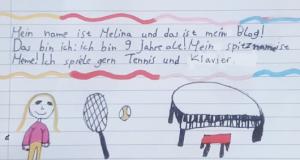 Mein name ist Melina und das ist mein Blog!
Das bin ich: ich bin 9 Jahre alt! Mein spitzname ist
Meme! Ich spiele gern Tennis und Klavier.